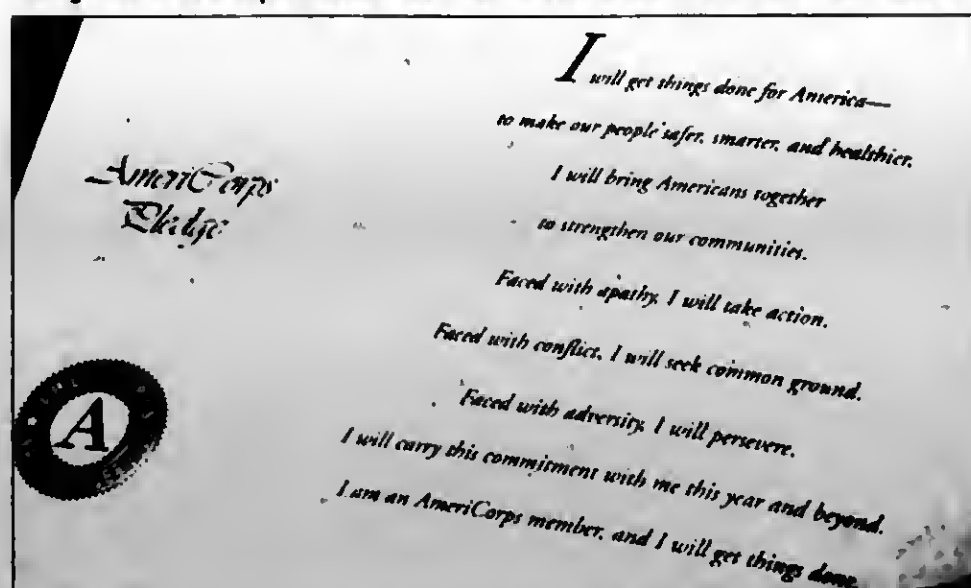 AmeriCorps
Pledge
I will get things done for America—
to make our people safer, smarter, and healthier.
I will bring Americans together
to strengthen our communities.
Faced with apathy, I will take action.
Faced with conflict, I will seek common ground.
Faced with adversity, I will persevere.
I will carry this commitment with me this year and beyond.
I am an AmeriCorps member, and I will get things done.
A